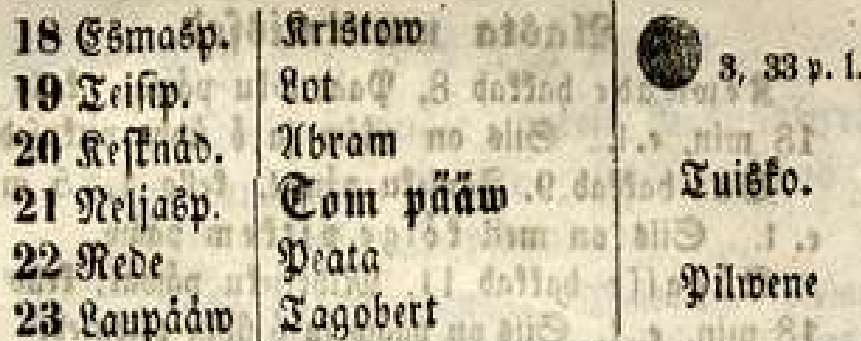 18 Esmasp. Kristow 3, 33 p. l.
19 Teisip. Lot
20 Keſknäd. Abram
21 Neljasp. Tom pääw Tuisko.
22 Rede Peata
23 Laupääw Tagobert Pilwene